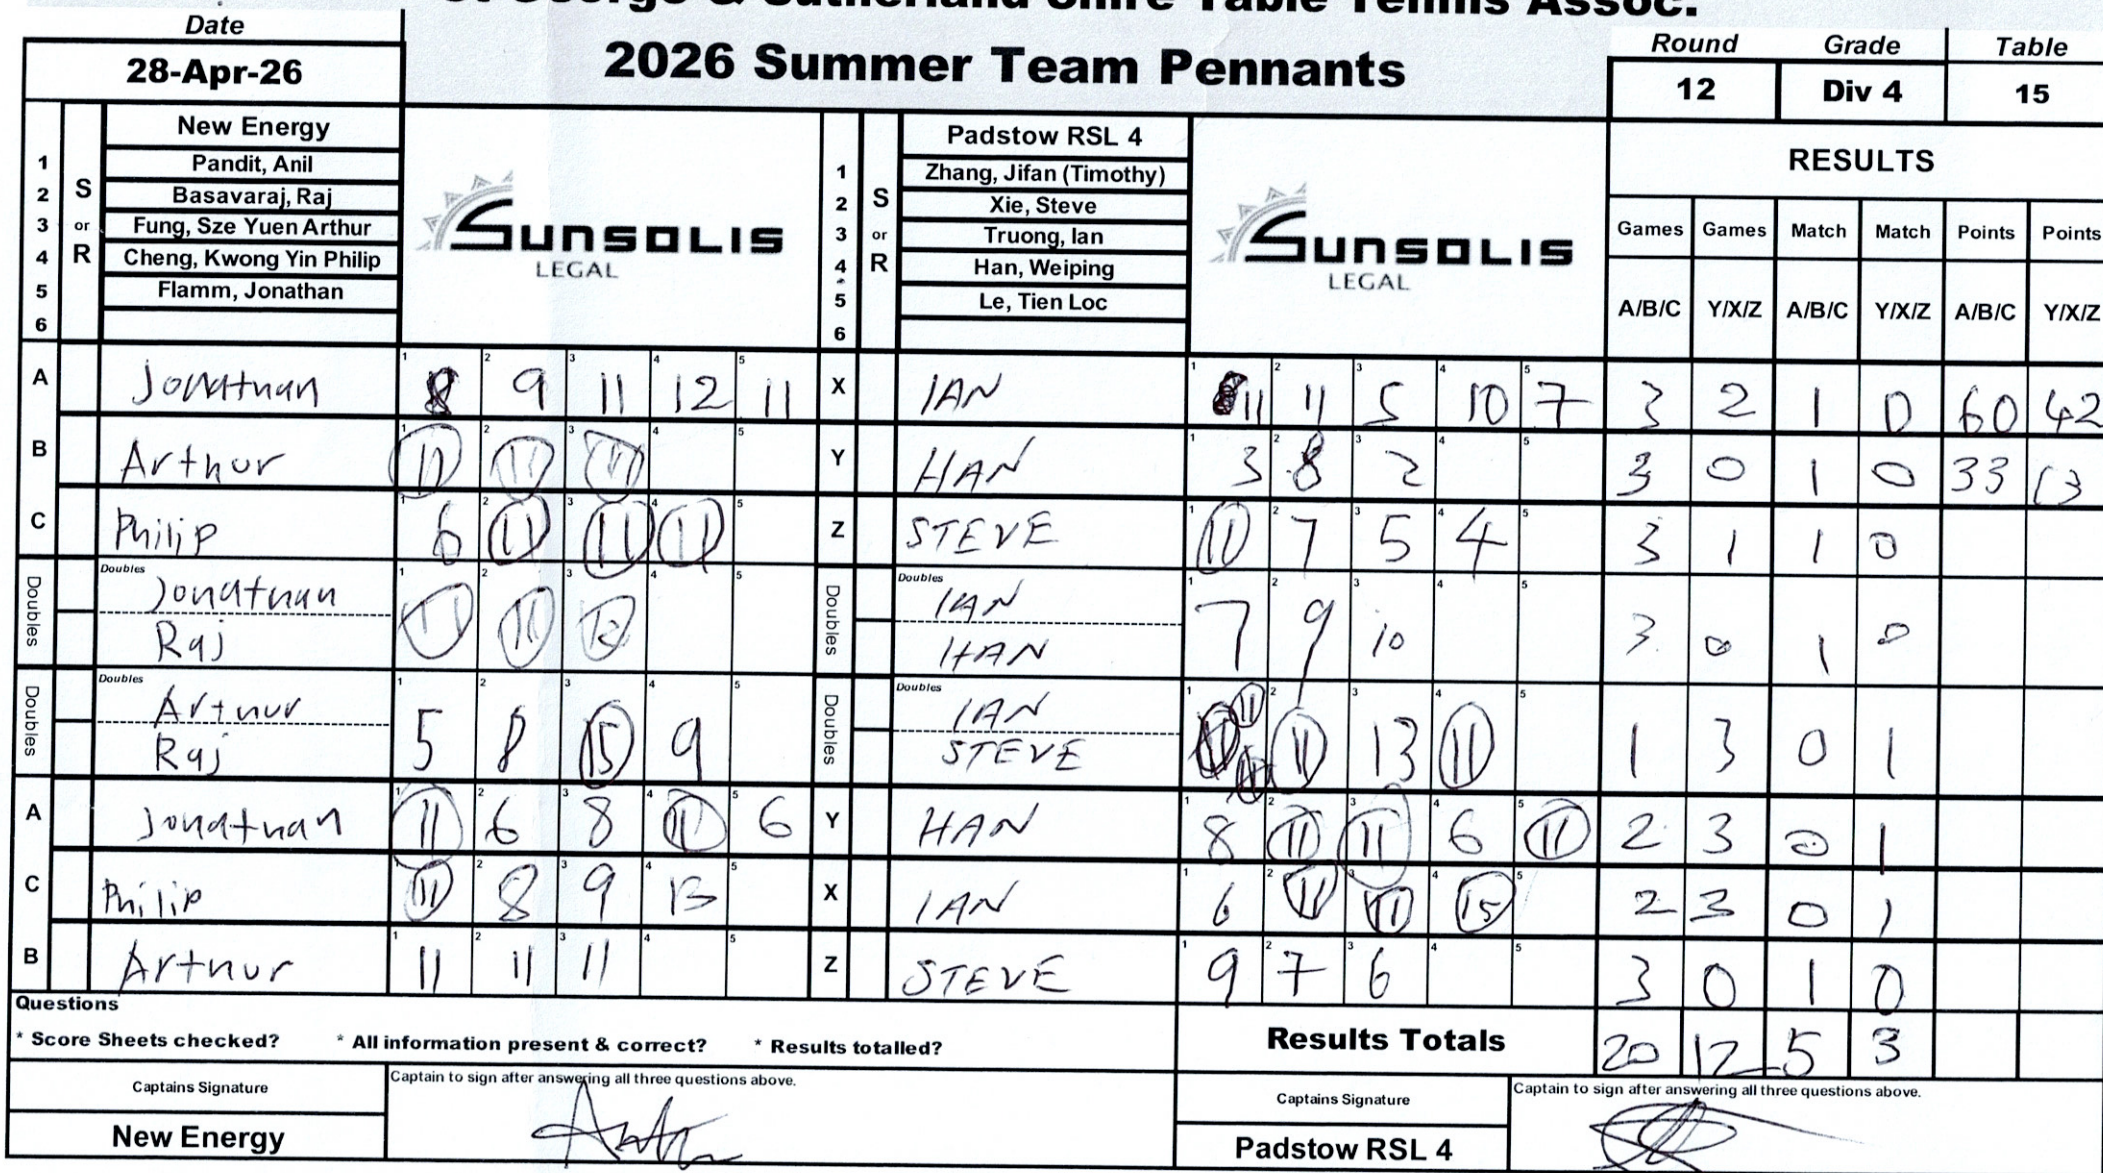 St George & Sutherland Shire Table Tennis Assoc.
Date
28-Apr-26
2026 Summer Team Pennants
Round Grade Table
12 Div 4 15
S or R
1 2 3 4 5 6
New Energy
Pandit, Anil
Basavaraj, Raj
Fung, Sze Yuen Arthur
Cheng, Kwong Yin Philip
Flamm, Jonathan
SUNSOLIS
LEGAL
1 2 3 4 5 6
S or R
Padstow RSL 4
Zhang, Jifan (Timothy)
Xie, Steve
Truong, Ian
Han, Weiping
Le, Tien Loc
SUNSOLIS
LEGAL
RESULTS
Games Games Match Match Points Points
A/B/C Y/X/Z A/B/C Y/X/Z A/B/C Y/X/Z
A Jonathan 8 9 11 12 11 X IAN 11 11 5 10 7 3 2 1 0 60 42
B Arthur 11 11 11 Y HAN 3 8 2 3 0 1 0 33 13
C Philip 6 11 11 11 Z STEVE 11 7 5 4 3 1 1 0
Doubles Doubles Jonathan 11 11 12 Doubles Doubles IAN 7 9 10 3 0 1 0
Raj HAN
Doubles Doubles Arthur 5 8 15 9 Doubles Doubles IAN 11 11 13 11 1 3 0 1
Raj STEVE
A Jonathan 11 6 8 11 6 Y HAN 8 11 11 6 11 2 3 0 1
C Philip 11 8 9 13 X IAN 6 11 11 15 2 3 0 1
B Arthur 11 11 11 Z STEVE 9 7 6 3 0 1 0
Questions
* Score Sheets checked? * All information present & correct? * Results totalled?
Results Totals 20 12 5 3
Captains Signature Captain to sign after answering all three questions above.
New Energy
Captains Signature Captain to sign after answering all three questions above.
Padstow RSL 4